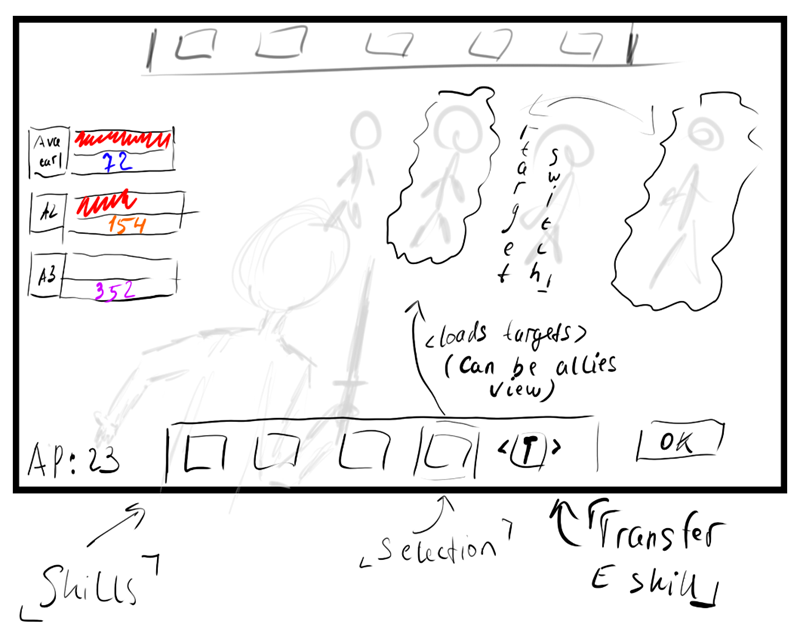 Ava
earl
72
A2
154
A3
352
target
switch
<loads targets>
(Can be allies
view)
AP: 23
<(T)>
OK
Skills
Selection
Transfer
E skill